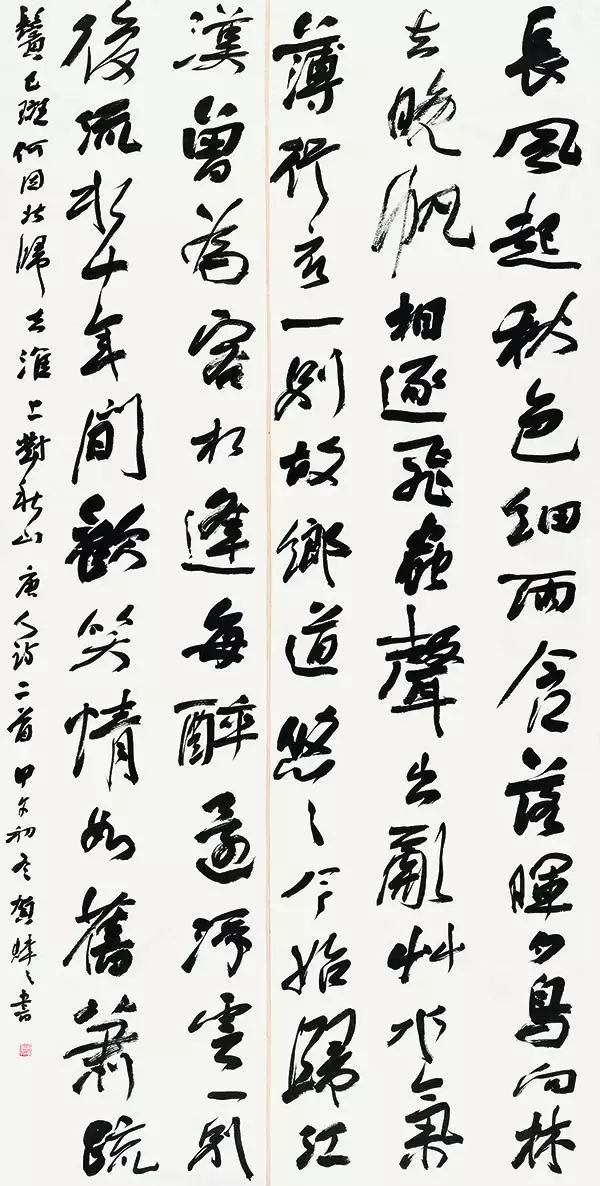 長風起秋色細雨含落暉夕鳥向林
去晚帆相逐飛蟲聲出亂艸水氣
薄行衣一別故鄉道悠々今始歸江
漢曾為客相逢每醉還浮雲一別
後流水十年間歡笑情如舊蕭疏
鬢已斑何因北歸去淮上對秋山唐人詩二首甲午初冬賀書